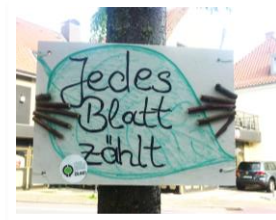 Jedes
Blatt
zählt